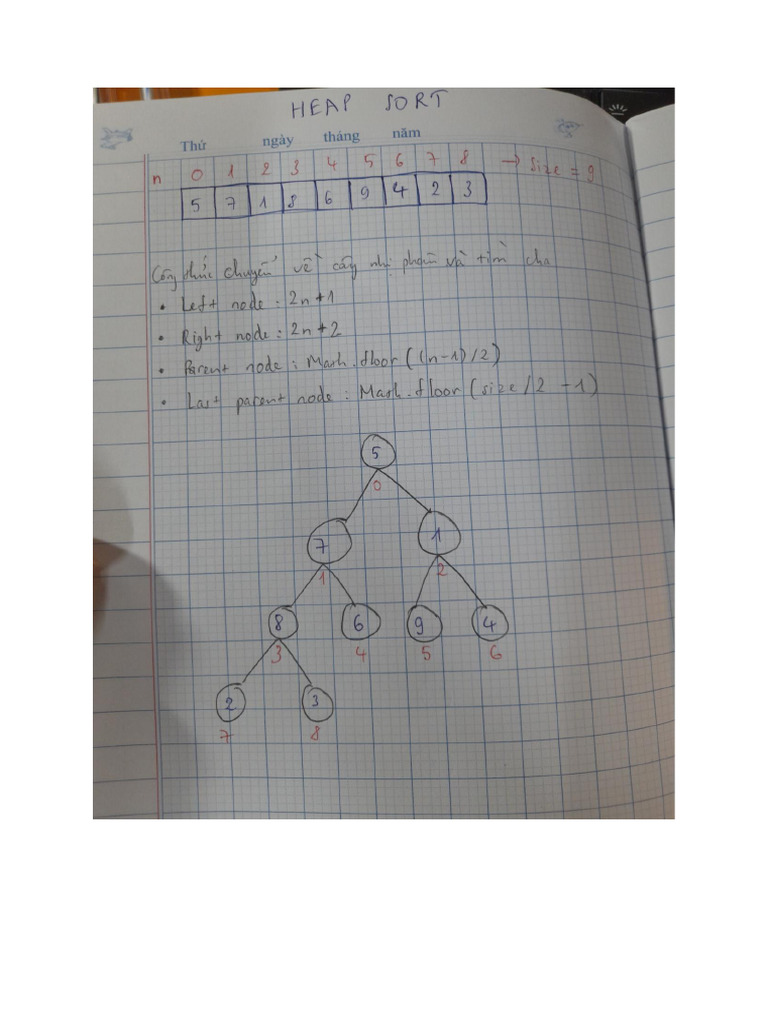 HEAP SORT
Thứ ngày tháng năm
n 0 1 2 3 4 5 6 7 8 → Size = 9
5 7 1 8 6 9 4 2 3
Công thức chuyển về cây nhị phân và tìm cha
• Left node : 2n+1
• Right node : 2n+2
• Parent node : Math.floor((n-1)/2)
• Last parent node : Math.floor(size/2 -1)
5
0
7 1
1 2
8 6 9 4
3 4 5 6
2 3
7 8